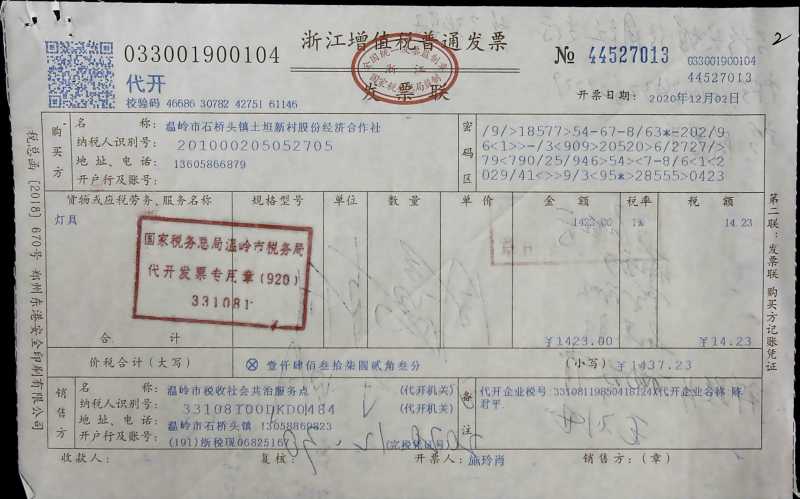 2
033001900104
浙江增值税普通发票
№ 44527013
033001900104
44527013
全国统一发票监制章
浙江
国家税务总局监制
代开
发票联
校验码 46686 30782 42751 61146
开票日期: 2020年12月02日
购买方
名称: 温岭市石桥头镇土坦新村股份经济合作社
纳税人识别号: 201000205052705
地址、电话: 13605866879
开户行及账号:
密码区
/9/>18577>54-67-8/63*-202/9
6<1>>-/3<909>20520>6/2727/>
79<790/25/946>54><7-8/6<1<2
029/41<>>9/3<95*>28555>0423
货物或应税劳务、服务名称 规格型号 单位 数量 单价 金额 税率 税额
灯具 1423.00 1% 14.23
国家税务总局温岭市税务局
代开发票专用章(920)
331081
合计 ¥1423.00 ¥14.23
价税合计(大写) ⊗壹仟肆佰叁拾柒圆贰角叁分 (小写) ¥1437.23
销售方
名称: 温岭市税收社会共治服务点 (代开机关)
纳税人识别号: 33108100DKD0484 (代开机关)
地址、电话: 温岭市石桥头镇 13058869823
开户行及账号: (191)浙税现06825167 (完税凭证号)
备注
代开企业税号:33108119850418124X代开企业名称:陈
君平
收款人: 复核: 开票人: 施玲肖 销售方:(章)
税总函〔2018〕670号 郑州东港安全印刷有限公司
第二联:发票联 购买方记账凭证